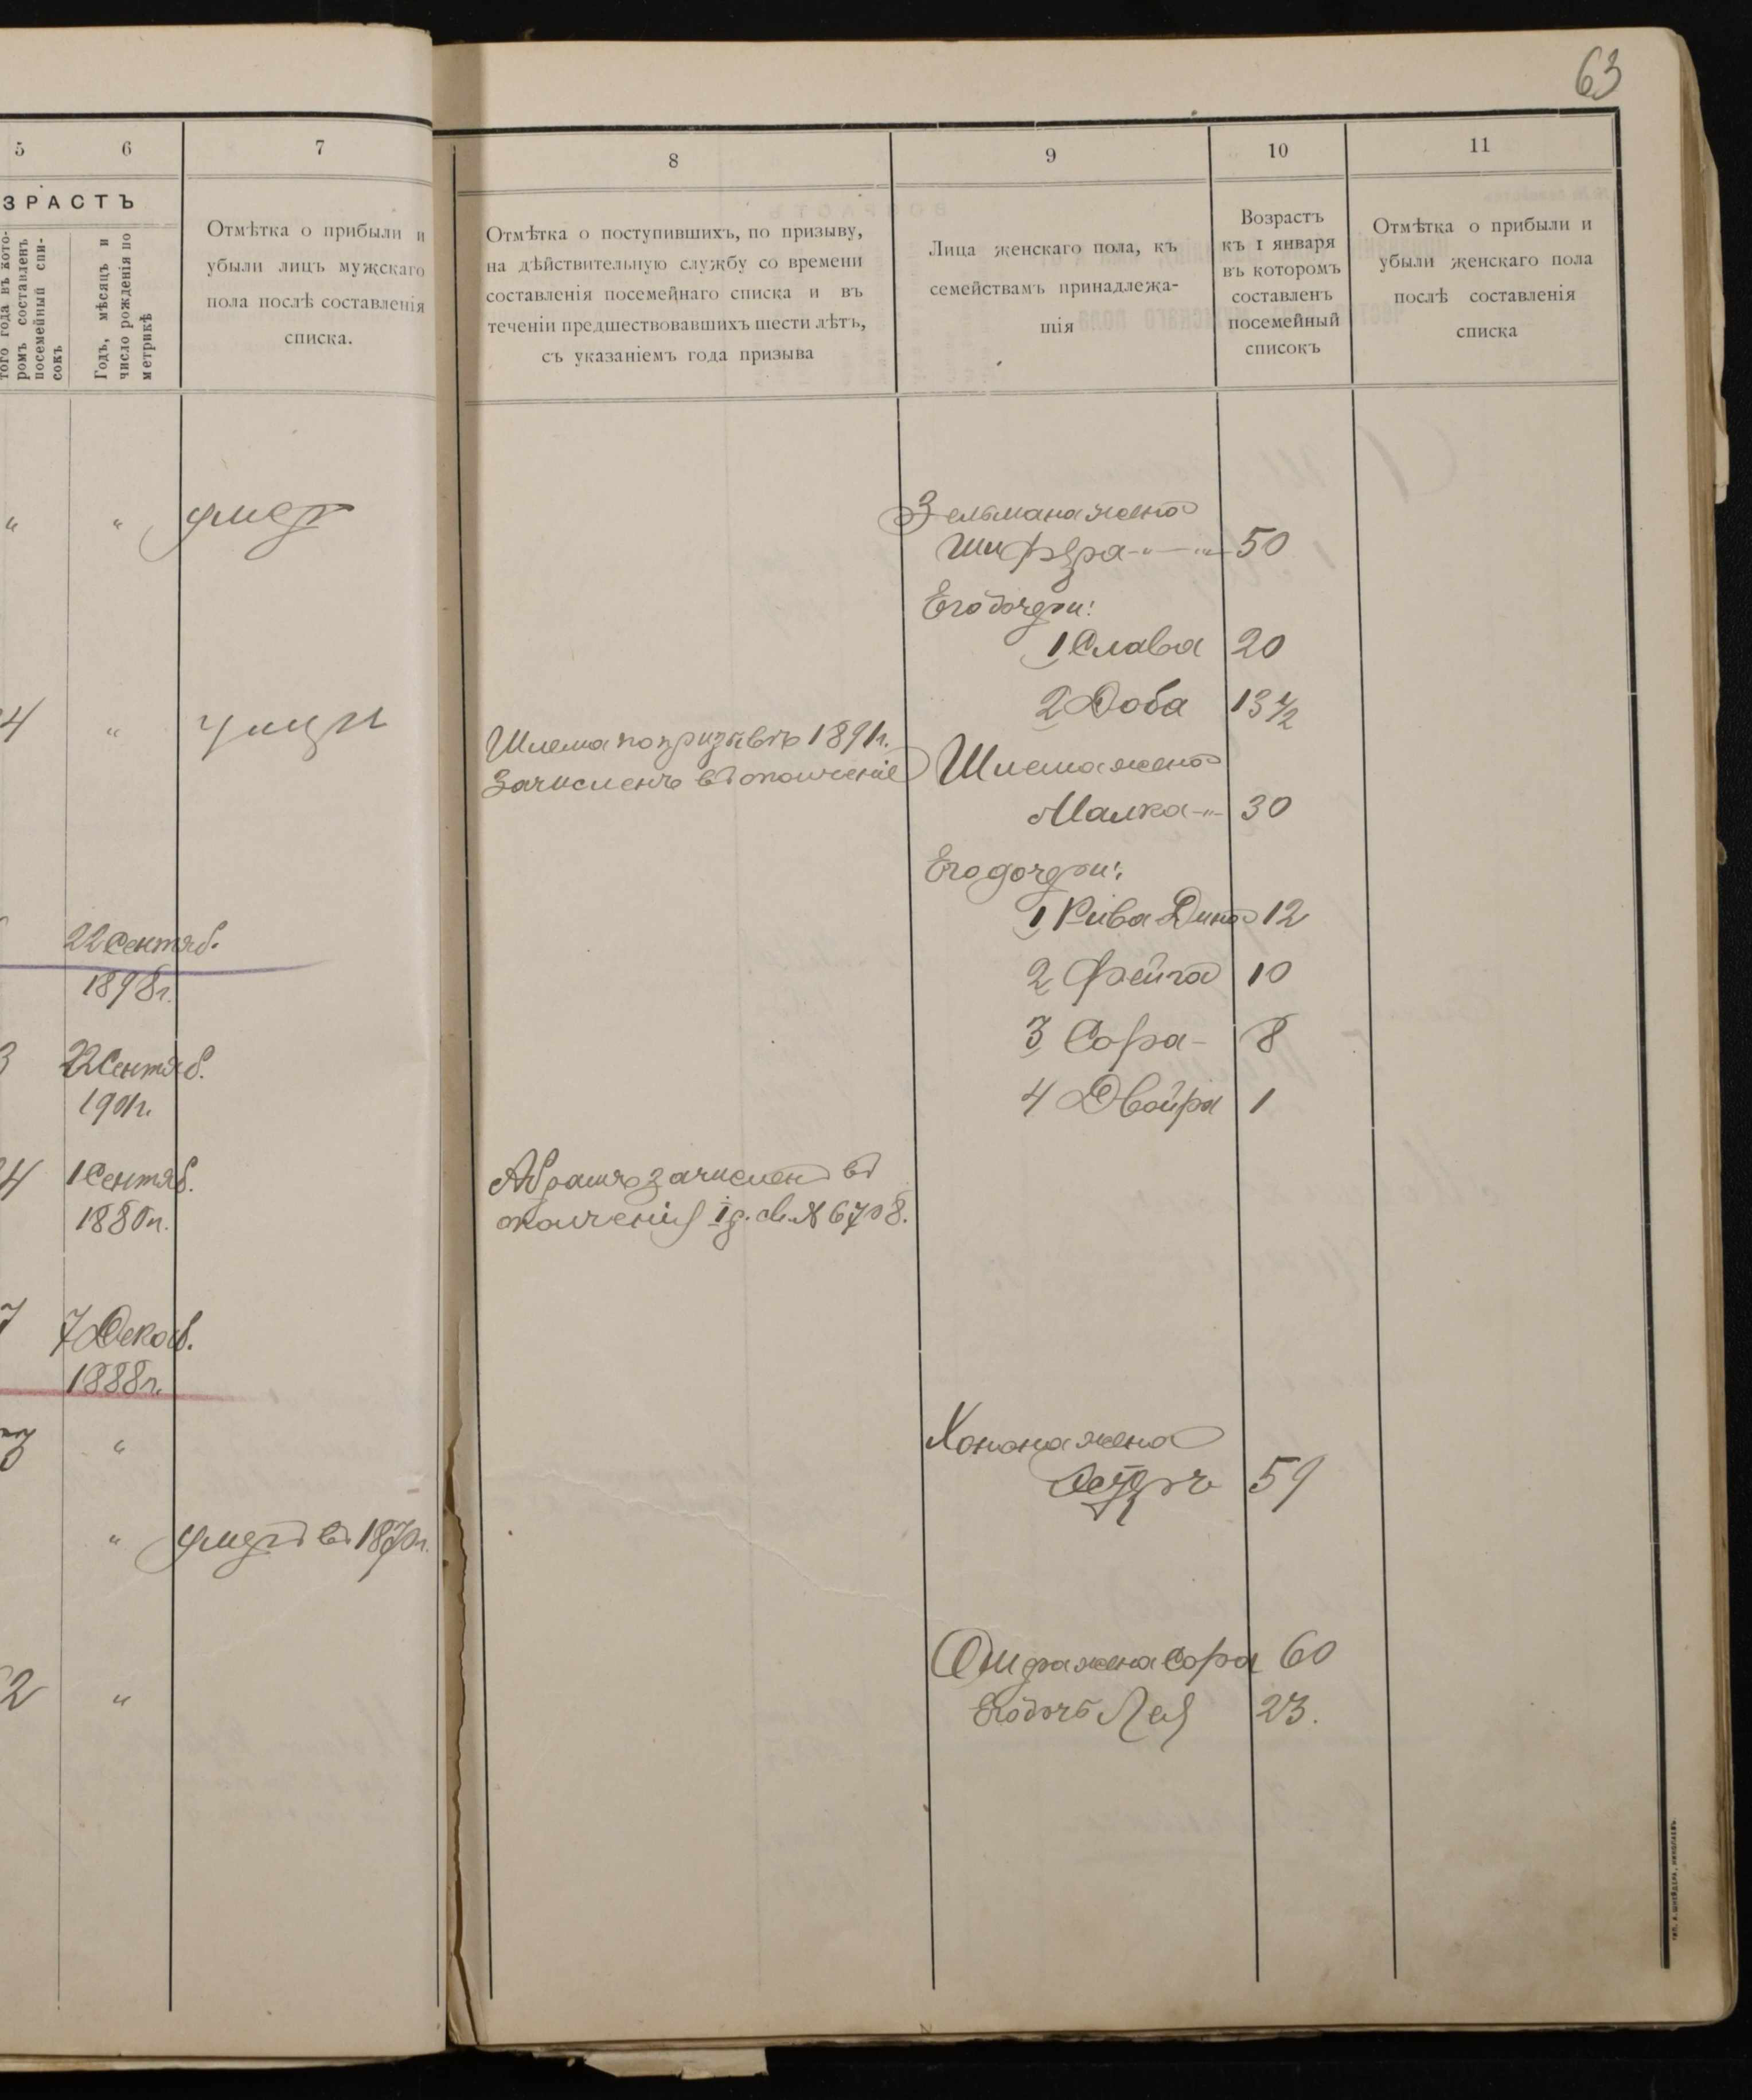 63
5
6
7
8
9
10
11
ЗРАСТЪ
того года въ кото-
ромъ составленъ
посемейный спи-
сокъ
Годъ, мѣсяцъ и
число рожденія по
метрикѣ
Отмѣтка о прибыли и
убыли лицъ мужскаго
пола послѣ составленія
списка.
Отмѣтка о поступившихъ, по призыву,
на дѣйствительную службу со времени
составленія посемейнаго списка и въ
теченіи предшествовавшихъ шести лѣтъ,
съ указаніемъ года призыва
Лица женскаго пола, къ
семействамъ принадлежа-
щія
Возрастъ
къ 1 января
въ которомъ
составленъ
посемейный
списокъ
Отмѣтка о прибыли и
убыли женскаго пола
послѣ составленія
списка
" " умер
Зельмана жена
Шифра 50
Его дочери:
1 Слава 20
2 Доба 13 1/2
4 "
Шлема по призыву 1891 г.
Зачисленъ въ ополченіе
Шлема жена
Малка 30
Его дочери:
1 Рива Дина 12
2 Фейга 10
3 Сора 8
4 Двойра 1
22 Сентяб.
1898 г.
3 22 Сентяб.
1901 г.
4 1 Сентяб.
1880 г.
Абрамъ зачислен въ
ополченія I р. св. № 6708.
7 7 Декаб.
1888 г.
"
Хонона жена
Эстеръ 59
" умеръ въ 1870 г.
2 "
жена Сора 60
Его дочь Лея 23.
ТИП. А. ШНЕЙДЕРА, НИКОЛАЕВЪ.